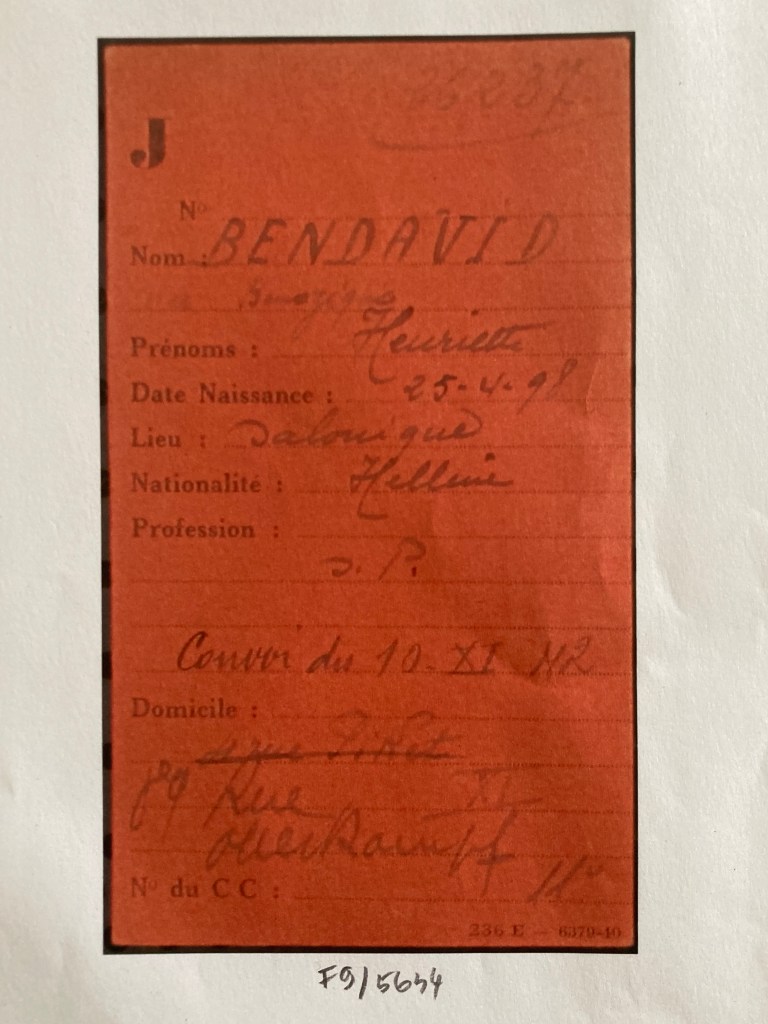 26237
J
No
Nom : BENDAVID
Prénoms : Henriette
Date Naissance : 25-4-98
Lieu : Salonique
Nationalité : Hellène
Profession :
S.P.
Convoi du 10-XI 42
Domicile :
rue
Rue XI
Oberkampf
No du C C : 11e
236 E — 6379-40
F9/5634